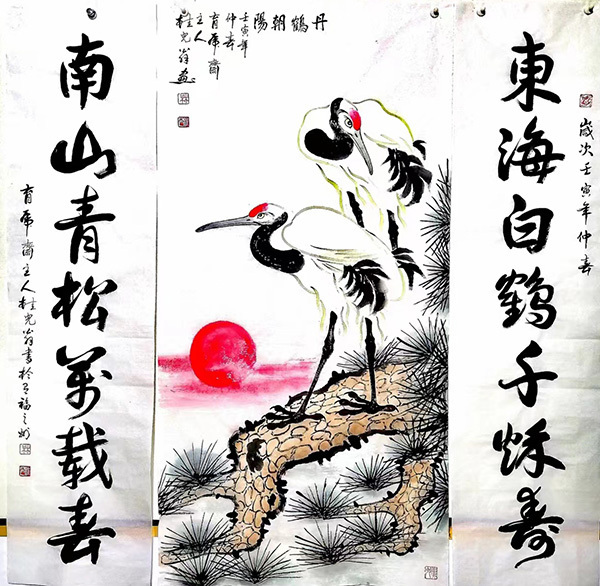 東海白鶴千秌壽
歲次壬寅年仲春
丹鶴朝陽
壬寅年
仲春
育齋
主人
桂光翁畫
南山青松萬載春
育齋主人桂光翁書於有福之州